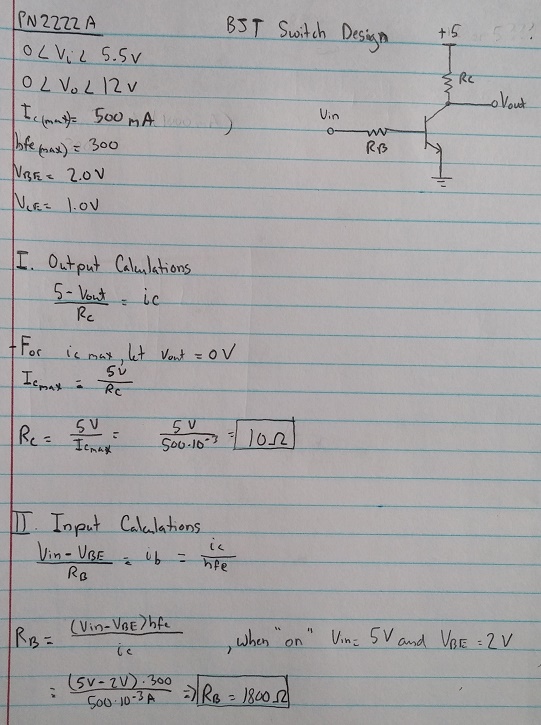 PN2222A
BJT Switch Design
0 < Vi < 5.5v
0 < Vo < 12v
Ic(max) = 500 mA
)
hfe(max) = 300
VBE = 2.0V
VCE = 1.0V
+5
Rc
Vout
Vin
RB
I. Output Calculations
5-Vout / Rc = ic
For ic max, let Vout = 0V
Icmax = 5V / Rc
Rc = 5V / Icmax = 5V / 500·10⁻³ = 10Ω
II. Input Calculations
Vin - VBE / RB = ib = ic / hfe
RB = (Vin-VBE)hfe / ic , when "on" Vin = 5V and VBE = 2V
= (5V-2V)·300 / 500·10⁻³A => RB = 1800Ω